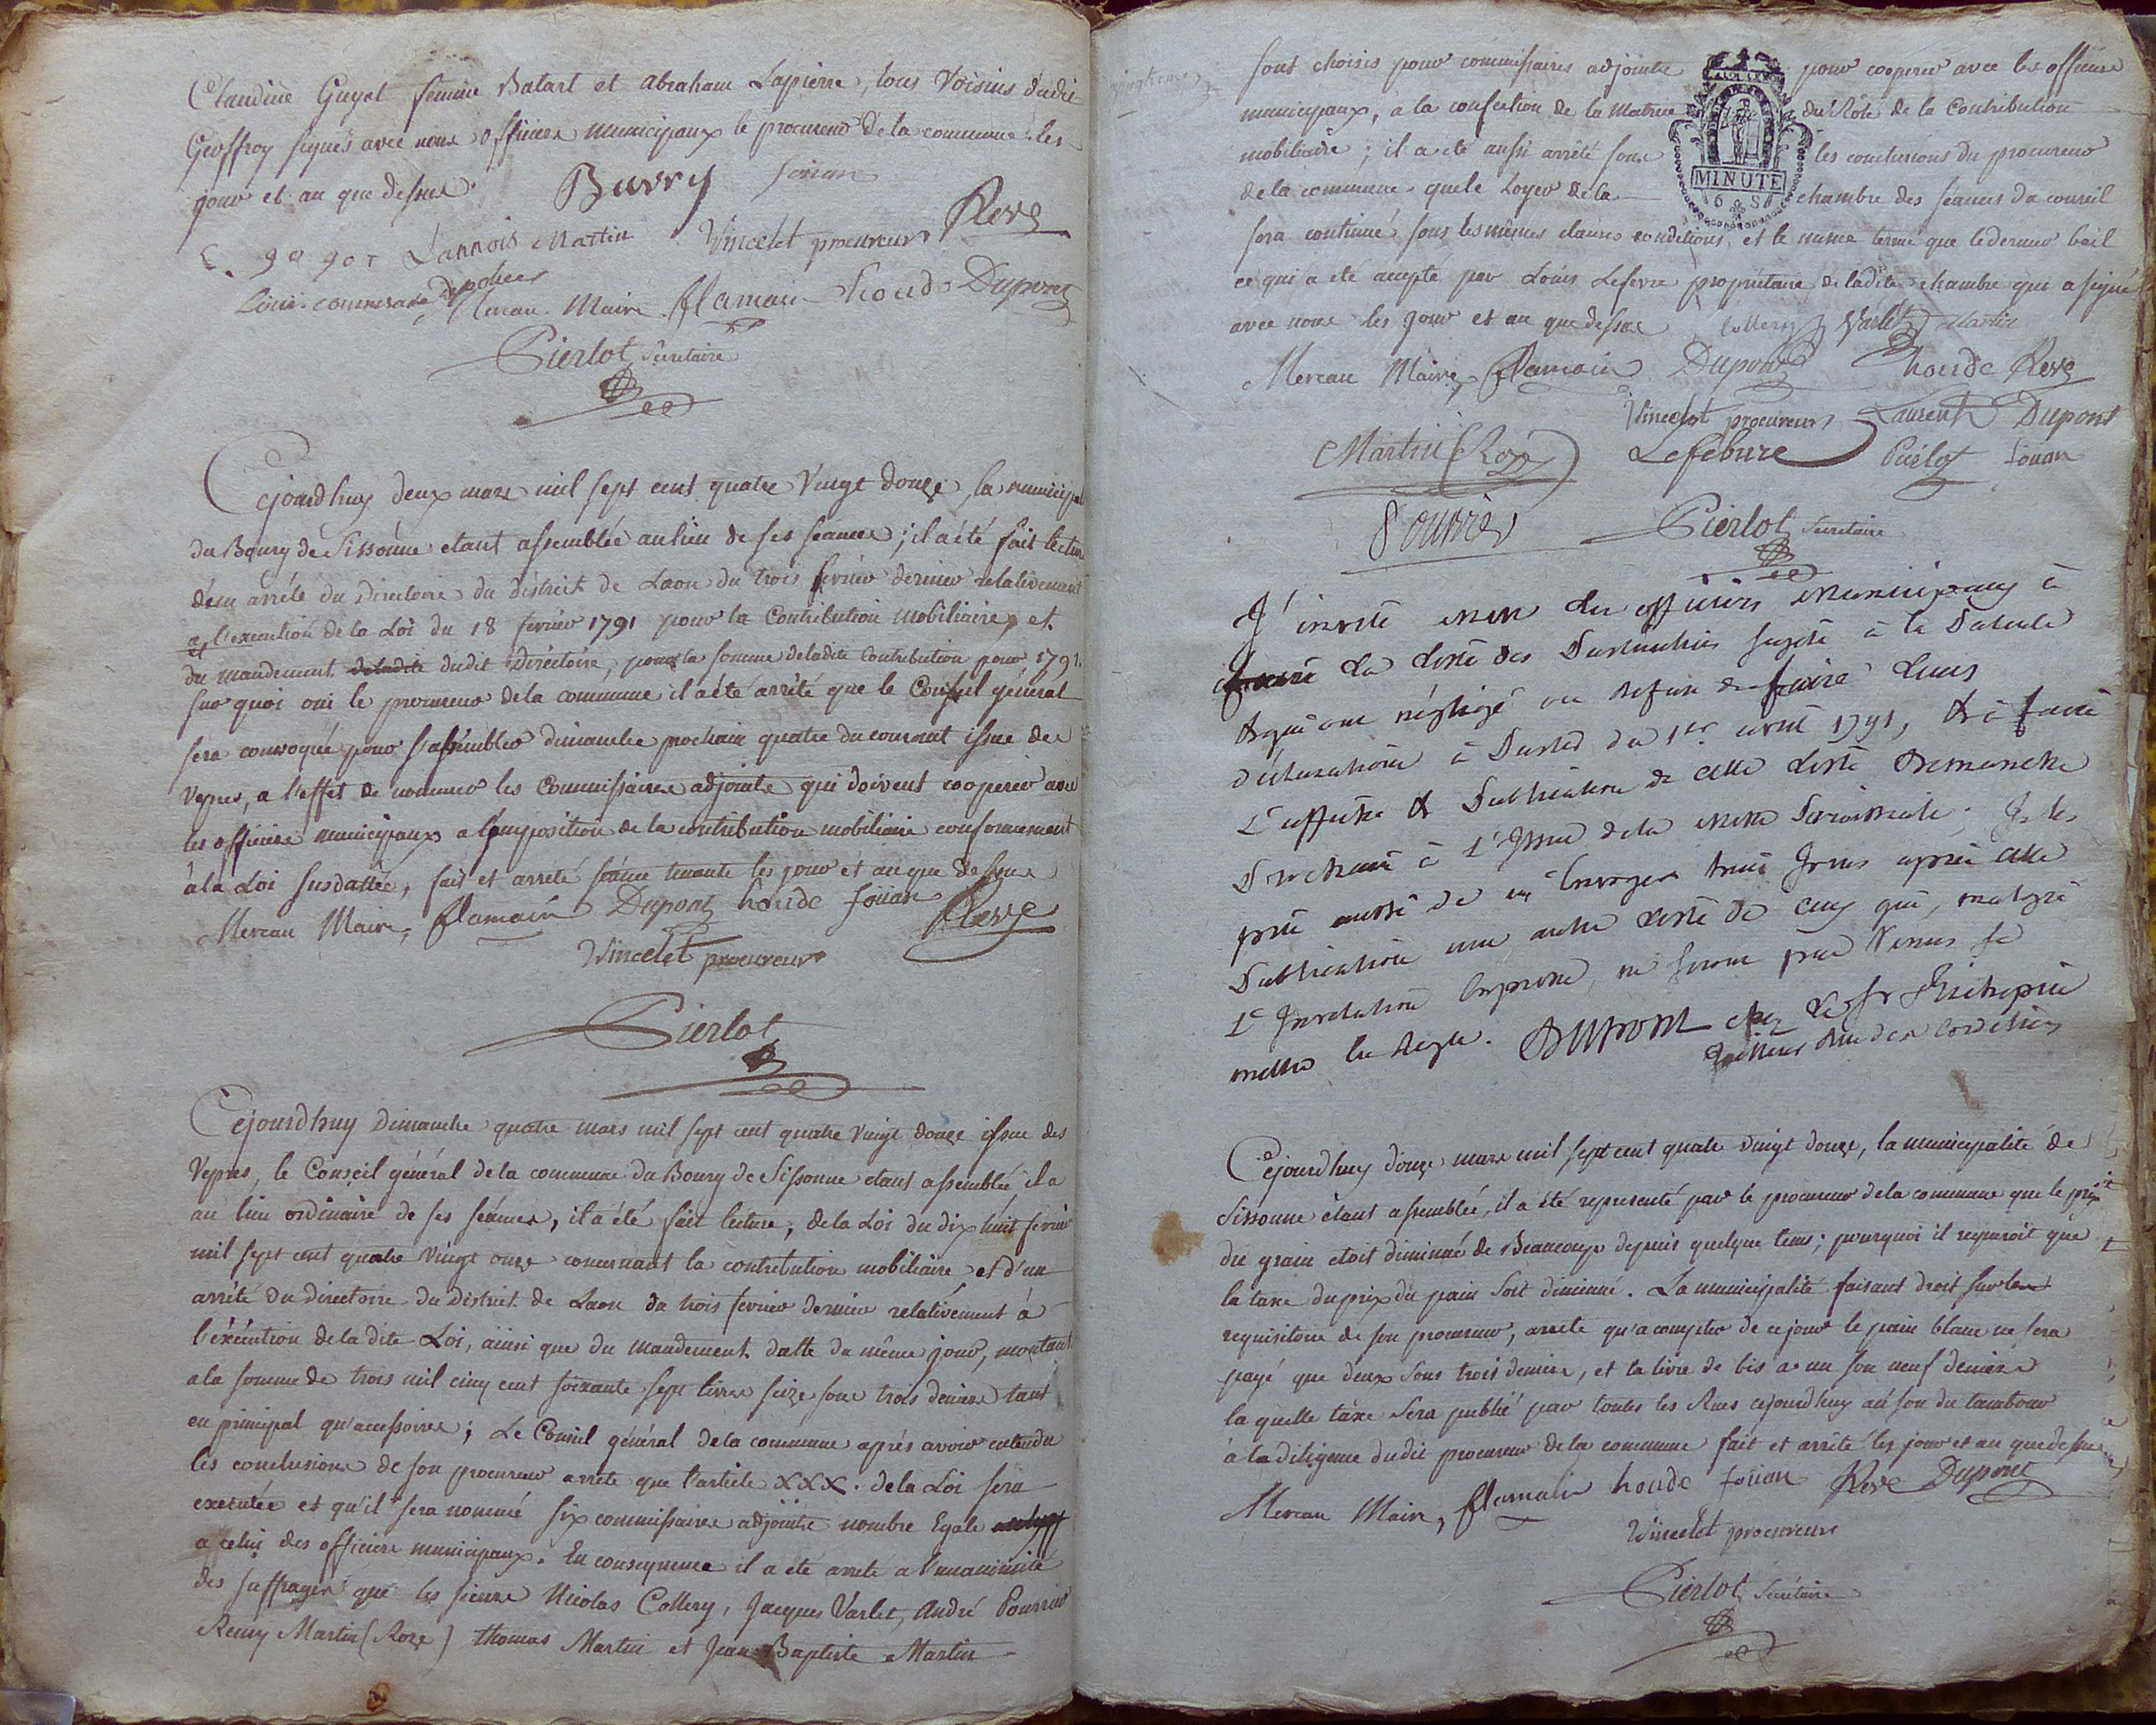 Claudine Guyot femme Batart et abraham Lapierre, tous Voisins dudit
Geoffroy signés avec nous officiers municipaux le procureur de la commune les
jour et an que dessus. Buvry foüan
Lannois Martin Vincelet procureur Reve
Mereau Maire flamain houde Dupont
Pierlot Secretaire
Cejourdhuy deux mars mil sept cent quatre Vingt douze, la municipal
du Bourg de Sissonne etant assemblée au lieu de ses séances; il a été fait lecture
d'un arrêté du Directoire du district de Laon du trois fevrier dernier relativement
a l'execution de la Loi du 18 fevrier 1791 pour la Contribution mobiliaire, et
du mandement deladite dudit Directoire, pour la somme deladite Contribution pour 1791.
sur quoi oui le procureur de la commune il a été arrêté que le Conseil général
sera convoquée pour s'assembler dimanche prochain quatre du courant issue des
Vepres, a l'effet de nommer les Commissaires adjoints qui doivent cooperer avec
les officiers municipaux a l'imposition de la contribution mobiliaire conformement
à la Loi susdattée, fait et arreté séance tenante les jour et an que dessus
Mereau Maire, flamain Dupont houde foüan Reve
Vincelet procureur
Pierlot
Cejourdhuy Dimanche quatre mars mil sept cent quatre Vingt douze issue des
Vepres, le Conseil général de la commune du Bourg de Sissonne etant assemblée il a
au lieu ordinaire de ses séances, il a été fait lecture, de la Loi du dix huit fevrier
mil sept cent quatre Vingt onze concernant la contribution mobiliaire et d'un
arrêté du directoire du District de Laon du trois fevrier dernier relativement à
l'éxécution de la dite Loi, ainsi que du mandement datté du même jour, montant
a la somme de trois mil cinq cent soixante sept livres seize sous trois deniers tant
en principal qu'accessoires; Le Conseil général de la commune après avoir entendu
les conclusions de son procureur arrete que l'article XXX. de la Loi sera
executée et qu'il sera nommé six commissaires adjoints nombre Egale
a celui des officiers municipaux. En consequence il a été arreté a l'unanimité
des suffrages que les sieurs Nicolas Collery, Jacques Varlet, André Pourrier
Remy Martin (Roze) Thomas Martin et Jean Baptiste Martin
sont choisis pour commissaires adjoints pour cooperer avec les officiers
municipaux, a la confection de la Matrice du Rôle de la Contribution
mobiliaire; il a été aussi arrêté sous les conclusions du procureur
MINUTE
de la commune que le Loyer de la chambre des séances du conseil
sera continué sous les mêmes clauses conditions et le meme terme que le dernier bail
ce qui a été accepté par Louis Lefevre propriétaire de ladite chambre qui a signé
avec nous les jour et an que dessus Collery Varlet Martin
Mereau Maire flamain Dupont houde Reve
Vincelet procureur Laurent Dupont
Martin (Roze) Lefebvre foüan
Pourrier Pierlot Secretaire
J'invite messieurs les officiers Municipaux à
la Liste des Particuliers sujets à la Patente
& qui ont négligé ou refusé de faire leurs
déclarations à Partir du 1er avril 1791, & à faire
L'affiche & Publication de cette Liste Dimanche
Prochain à L'Issue de la messe Paroissiale. Je les
prie aussi de m'envoyer trois Jours après cette
Publication une autre Liste de ceux qui, malgré
L'Invitation Expresse, ne seront pas Venus se
mettre en Regle. DUPONT chez Le Sr
Cejourdhuy douze mars mil sept cent quatre Vingt douze, la municipalité de
Sissonne étant assemblée, il a été representé par le procureur de la commune que le prix
du grain etoit diminué de Beaucoup depuis quelque tems; pourquoi il requeroit que
la taxe du prix du pain soit diminué. La municipalité faisant droit sur le
requisitoire de son procureur, arrete qu'a compter de ce jour le pain blanc ne sera
payé que deux sous trois deniers, et la livre de bis a un sou neuf deniers
la quelle taxe sera publié par toutes les Rues cejourdhuy au son du tambour
à la diligence dudit procureur de la commune fait et arrêté les jour et an que dessus
Mereau Maire, flamain houde foüan Reve Dupont
Vincelet procureur
Pierlot Secrétaire